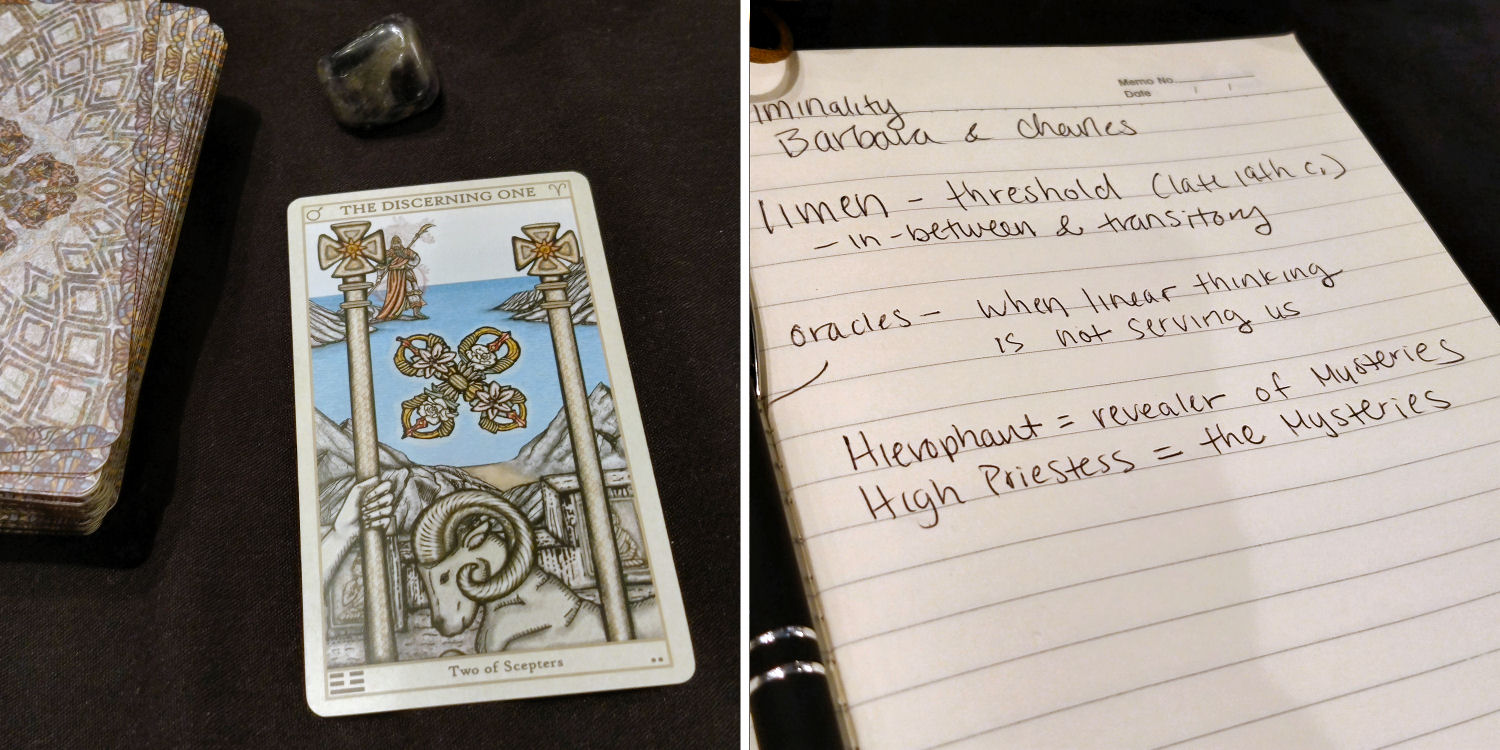 ♂ THE DISCERNING ONE ♈
Two of Scepters
Memo No.
Date / /
iminality
Barbara & Charles
limen - threshold (late 19th c.)
- in-between & transitory
oracles - when linear thinking
is not serving us
Hierophant = revealer of Mysteries
High Priestess = the Mysteries